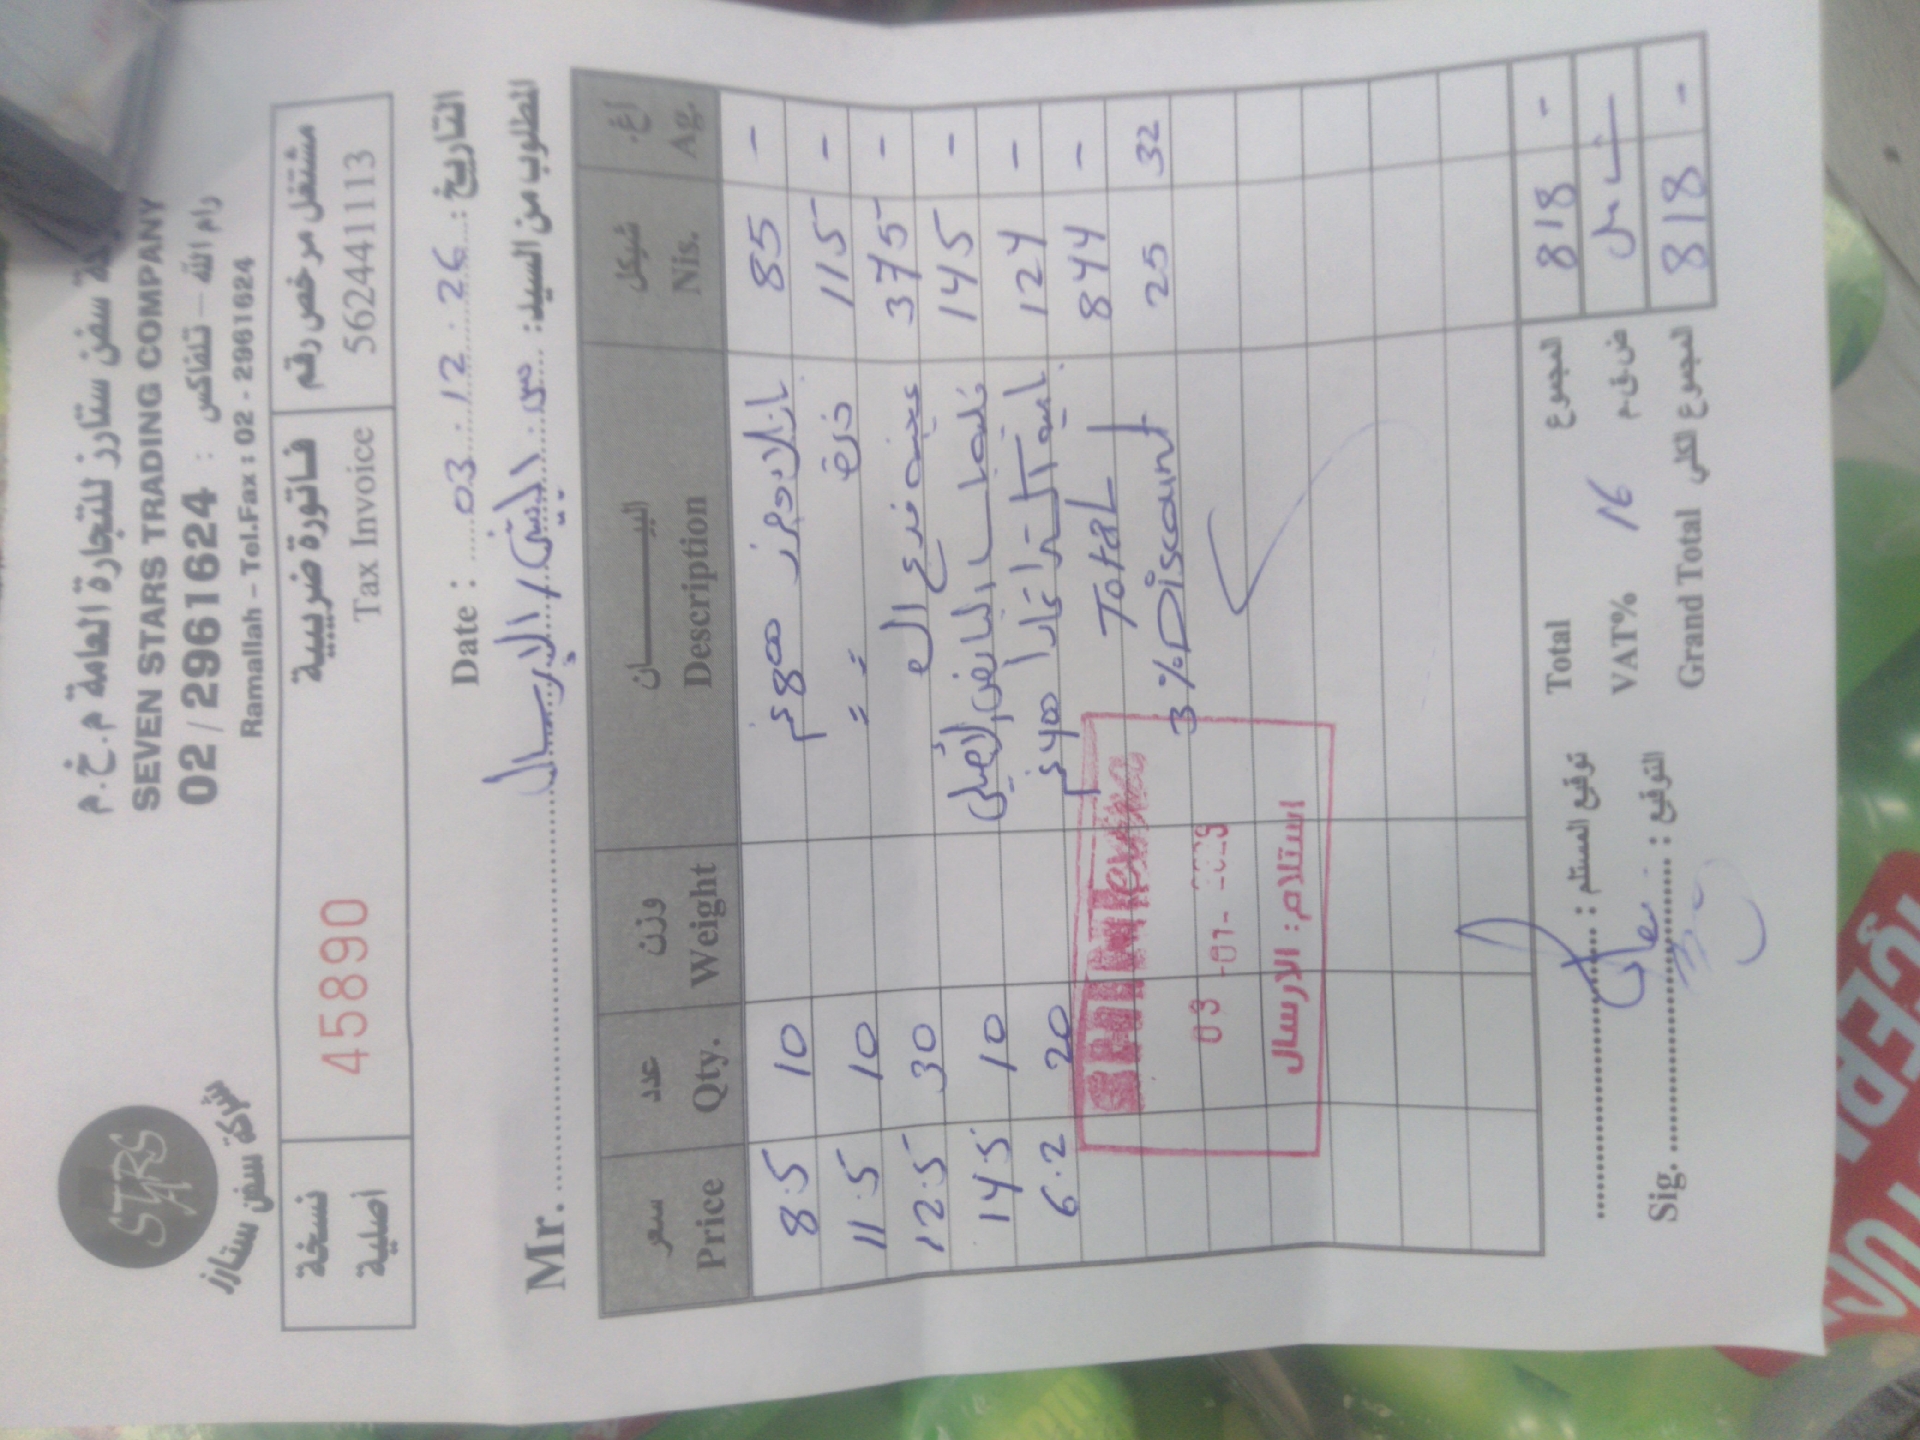 شركة سفن ستارز للتجارة العامة م.خ.م
SEVEN STARS TRADING COMPANY
02 / 2961624 : رام الله – تلفاكس
Ramallah – Tel.Fax : 02 - 2961624
STARS
شركة سفن ستارز
نسخة أصلية
45890
فاتورة ضريبية
Tax Invoice
مشتغل مرخص رقم
562441113
Date : 03.12.26 التاريخ :
Mr. المطلوب من السيد :
سعر Price عدد Qty. وزن Weight البيـــــان Description شيكل Nis. اغ. Ag.
8.5 10 800 غم 85 -
11.5 10 = = ذرة 115 -
12.5 30 375 -
14.5 10 145 -
6.2 20 400 غم 124 -
Total 844 -
3% Discount 25 32
استلام : الارسال
Total المجموع 818 -
VAT% 16 ض.ق.م شامل
Grand Total المجموع الكلي 818 -
توقيع المستلم :
Sig. التوقيع :